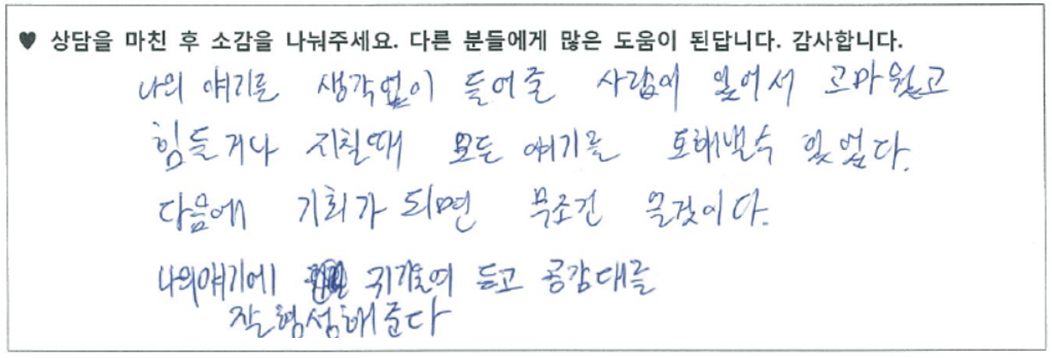 ♥ 상담을 마친 후 소감을 나눠주세요. 다른 분들에게 많은 도움이 된답니다. 감사합니다.
나의 얘기를 생각없이 들어줄 사람이 있어서 고마웠고
힘들거나 지칠때 모든 얘기를 토해낼수 있었다.
다음에 기회가 되면 무조건 올것이다.
나의얘기에 귀기울여 듣고 공감대를
잘형성해준다